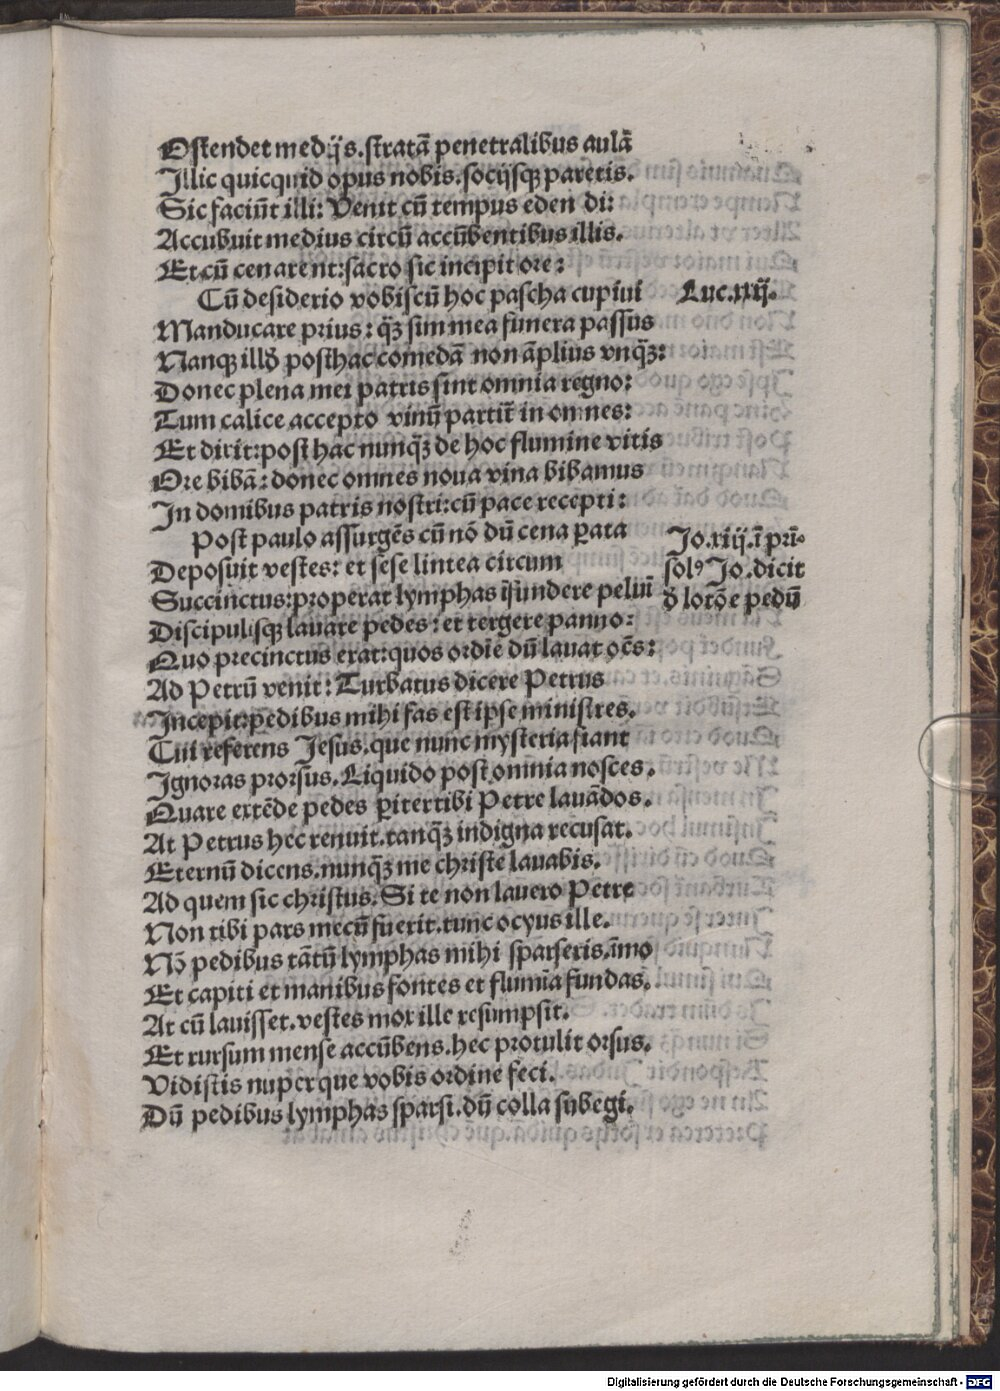 Ostendet medijs. stratā penetralibus aulā
Illic quicquid opus nobis. socijsqꝫ paretis.
Sic faciūt illi: Venit cū tempus eden di:
Accubuit medius circū accūbentibus illis.
Et cū cenarent: sacro sic incipit ore:
Cū desiderio vobiscū hoc pascha cupiui
Luc.xxij.
Manducare prius: qꝫ̄ sim mea funera passus
Nanqꝫ illđ posthac comedā non āplius vnqꝫ̄:
Donec plena mei patris sint omnia regno:
Tum calice accepto vinū partit̄ in omnes:
Et dixit: post hac nunqꝫ̄ de hoc flumine vitis
Ore bibā: donec omnes noua vina bibamus
In domibus patris nostri: cū pace recepti:
Post paulo assurgēs cū nō dū cena ꝑata
Jo.xiij. ī prī.
Deposuit vestes: et sese lintea circum
solꝰ Jo. dicit
Succinctus: properat lymphas īfundere peluī
đ lotōe pedū
Discipulisqꝫ lauare pedes: et tergere panno:
Quo precinctus erat: quos ordīe dū lauat oēs:
Ad Petrū venit: Turbatus dicere Petrus
Incepit: pedibus mihi fas est ipse ministres.
Cui referens Jesus. que nunc mysteria fiant
Ignoras prorsus. Liquido post omnia nosces.
Quare extēde pedes ꝑiter tibi Petre lauādos.
At Petrus hec renuit. tanqꝫ̄ indigna recusat.
Eternū dicens. nunqꝫ̄ me christe lauabis.
Ad quem sic christus. Si te non lauero Petre
Non tibi pars mecū fuerit. tunc ocyus ille.
Nō pedibus tātū lymphas mihi sparseris. īmo
Et capiti et manibus fontes et flumīa fundas.
At cū lauisset. vestes mox ille resumpsit.
Et rursum mense accūbens. hec protulit orsus.
Vidistis nuper que vobis ordine feci.
Dū pedibus lymphas sparsi. dū colla subegi.
Digitalisierung gefördert durch die Deutsche Forschungsgemeinschaft - DFG